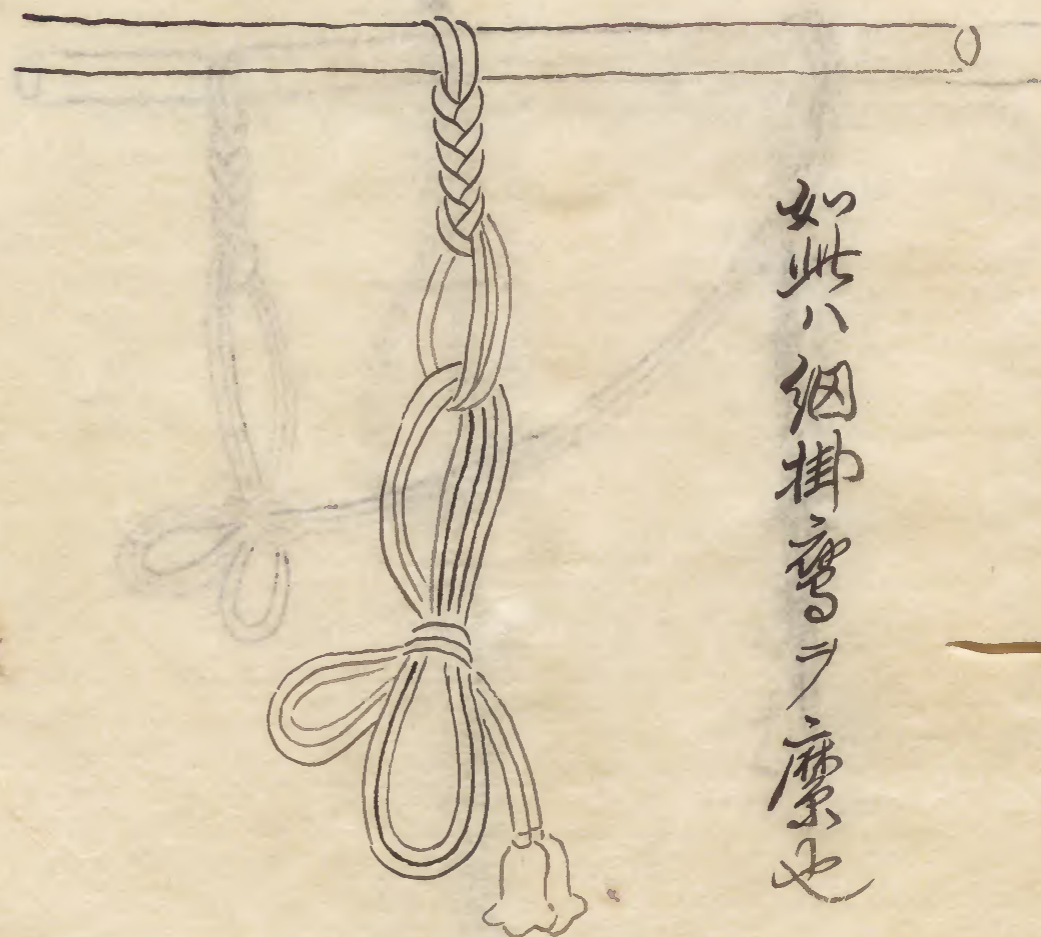 如此ハ網掛鷹ヲ縻也